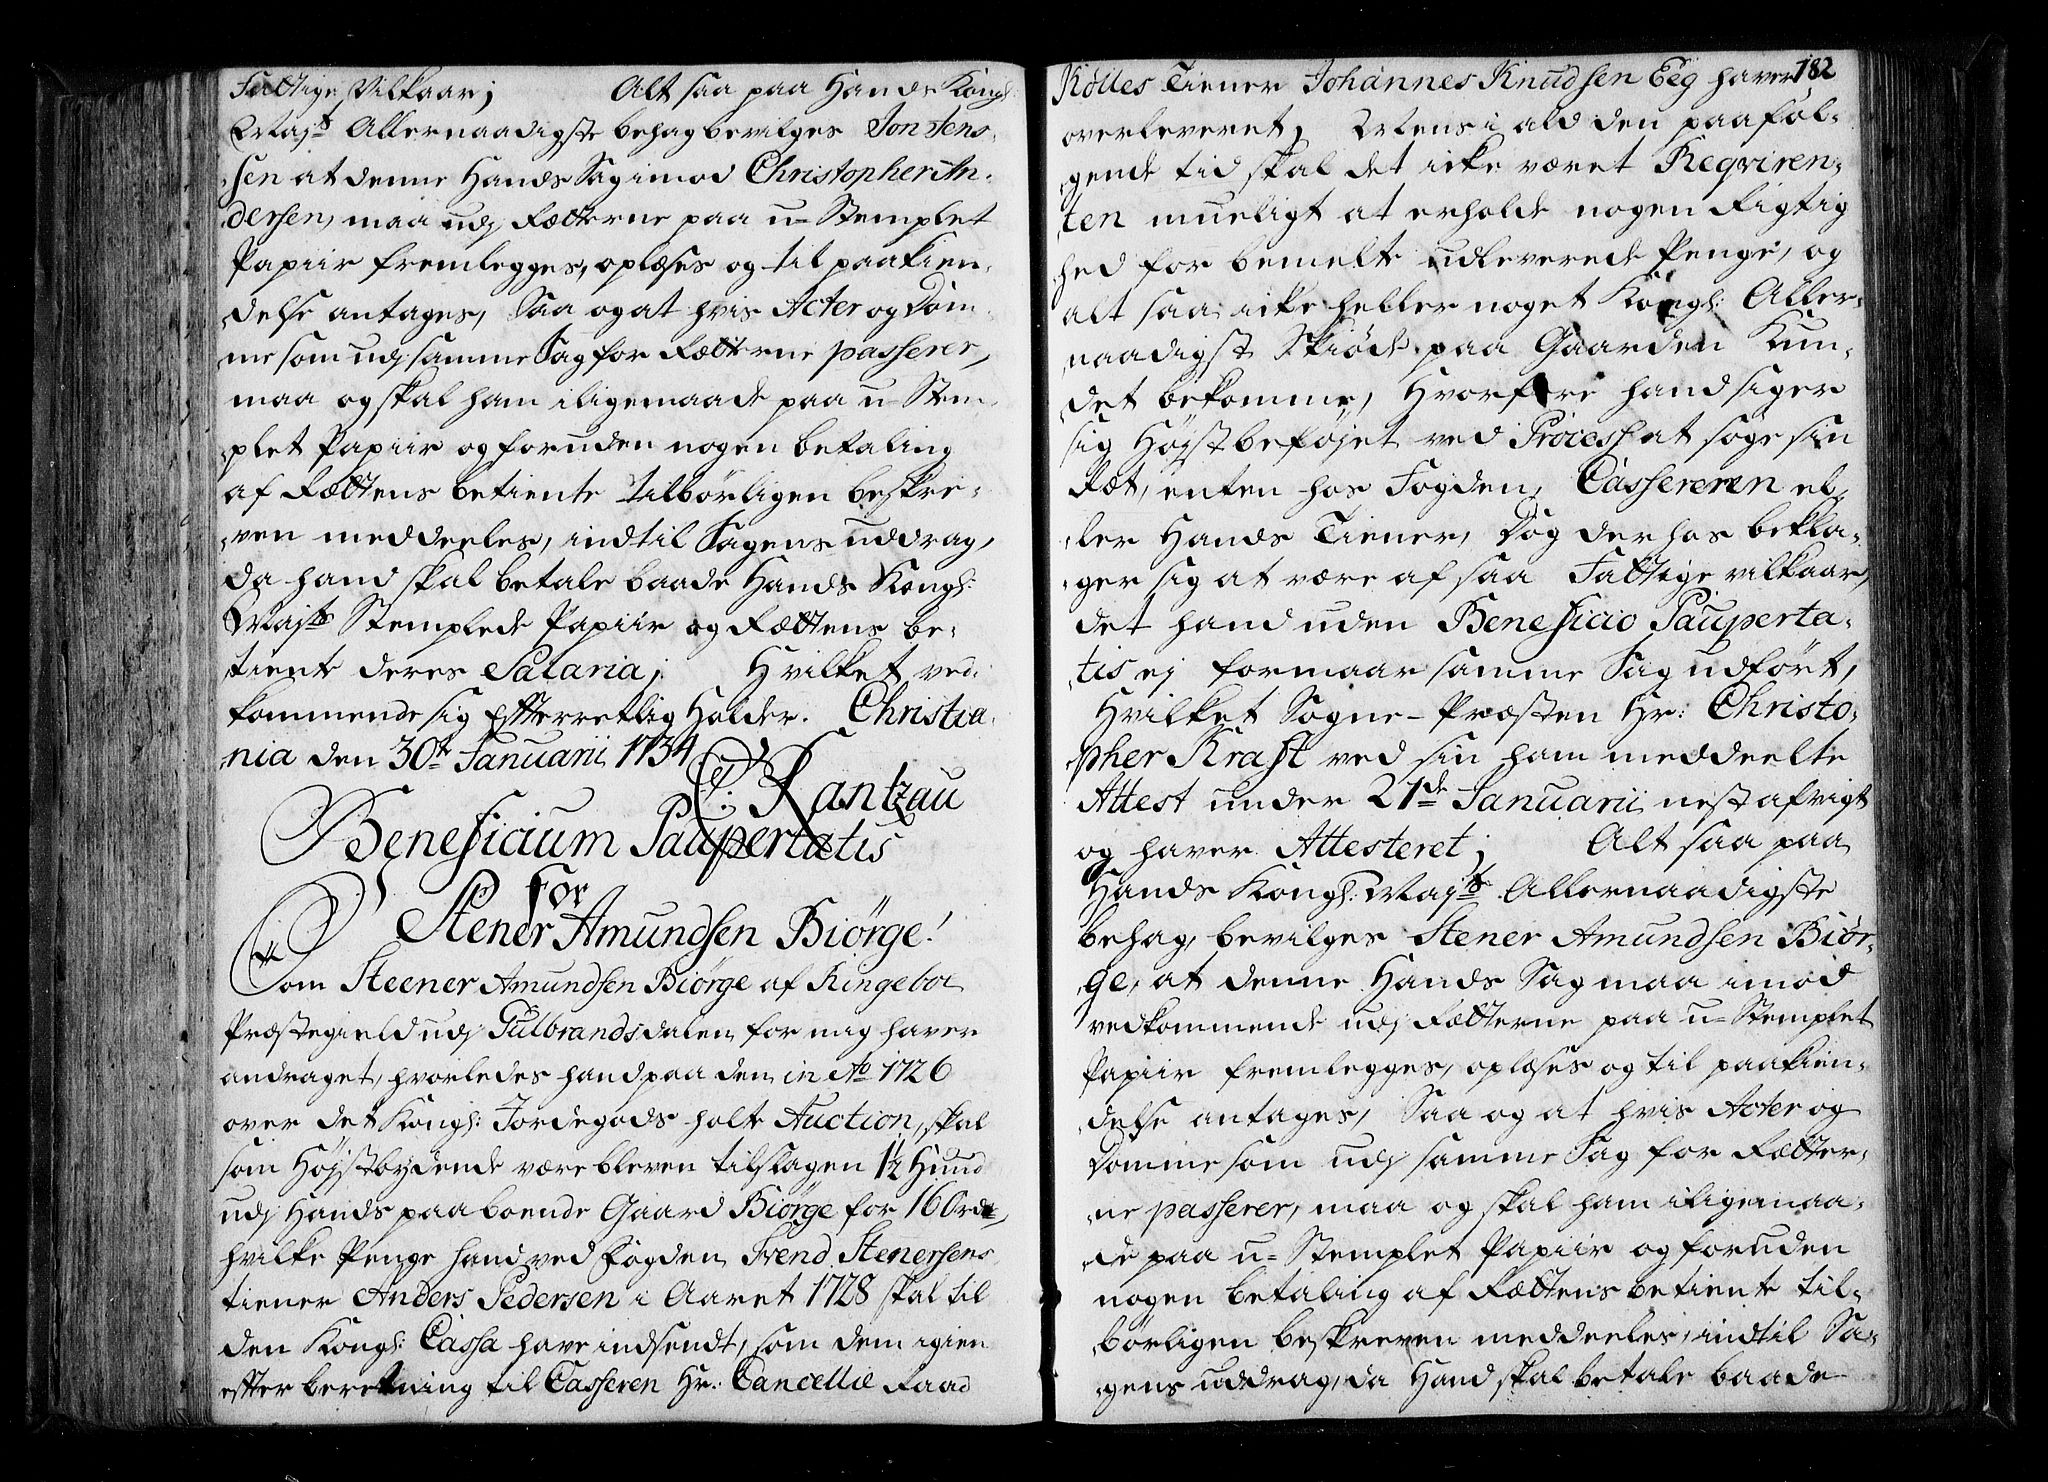 Fattige Vilkaar; Alt saa paa Hands Kongl:
Maj:ts Allernaadigste behag bevilges Jon Jens-
sen at denne Hands Sag imod Christopher An-
dersen, maa udj Rætterne paa u-Stemplet
Papiir fremlegges, oplæses og til paakien-
delse antages, Saa og at hvis Acter og Dom-
me som udj samme Sag for Rætterne passerer,
maa og skal ham iligemaade paa u-Stem-
plet Papiir og foruden nogen betaling
af Rættens betiente tilbörligen beskre-
ven meddeeles, indtil Sagens uddrag,
da hand skal betale baade Hands Kongl:
Maj:ts Stemplede Papiir og Rættens be-
tiente deres Salaria; Hvilket ved-
kommende sig Efterretlig Holder. Christia-
nia den 30te Januarii 1734
C: Rantzau
Beneficium Paupertatis
For
Stener Amundsen Biörge!
Som Steener Amundsen Biörge af Ringeboe
Præstegield udj Gulbrandsdalen for mig haver
andraget, hvorledes hand paa den in Ao 1726
over det Kongl: Jordegods holte Auction, skal
som Höjstbydende være bleven tilslagen 1½ Hund
udj Hands paaboende Gaard Biörge for 160 rdr,
hvilke Penge hand ved Fogden Trend Stenersens
tiener Anders Pedersen i Aaret 1728 skal til
den Kongl: Cassa have indsendt, som dem igien
efter beretning til Casseren Hr: Cancellie Raad
182
Kölles Tiener Johannes Knudsen Eeg haver
overleveret, Mens i ald den paaföl-
gende tid skal det icke været Reqviren-
ten mueligt at erholde nogen Rigtig
hed for bemelte udleverede Penge, og
alt saa icke heller noget Kongl: Aller-
naadigst Skiöde paa Gaarden Kun-
det bekomme, Hvorfore hand siger
sig Höjstbeföjet ved Process at söge sin
Ræt, enten hos Fogden, Cassereren el-
ler Hands Tiener, Dog der hos bekla-
ger sig at være af saa Fattige vilkaar,
det hand uden Beneficio Pauperta-
tis ej formaar samme Sag udfört,
Hvilket Sogne-Præsten Hr: Christo-
pher Kraft ved sin ham meddeelte
Attest under 21de Januarii nest afvigt
og haver Attesteret; Alt saa paa
Hands Kongl: Maj:ts Allernaadigste
behag, bevilges Stener Amundsen Biör-
ge, at denne Hands Sag maa imod
vedkommende udj Rætterne paa u-Stemplet
Papiir fremlegges, oplæses og til paakien-
delse antages, Saa og at hvis Acter og
Domme som udj samme Sag for Rætter-
ne passerer, maa og skal ham iligemaa-
de paa u-Stemplet Papiir og foruden
nogen betaling af Rættens betiente til-
börligen beskreven meddeeles, indtil Sa-
gens uddrag, da Hand skal betale baade